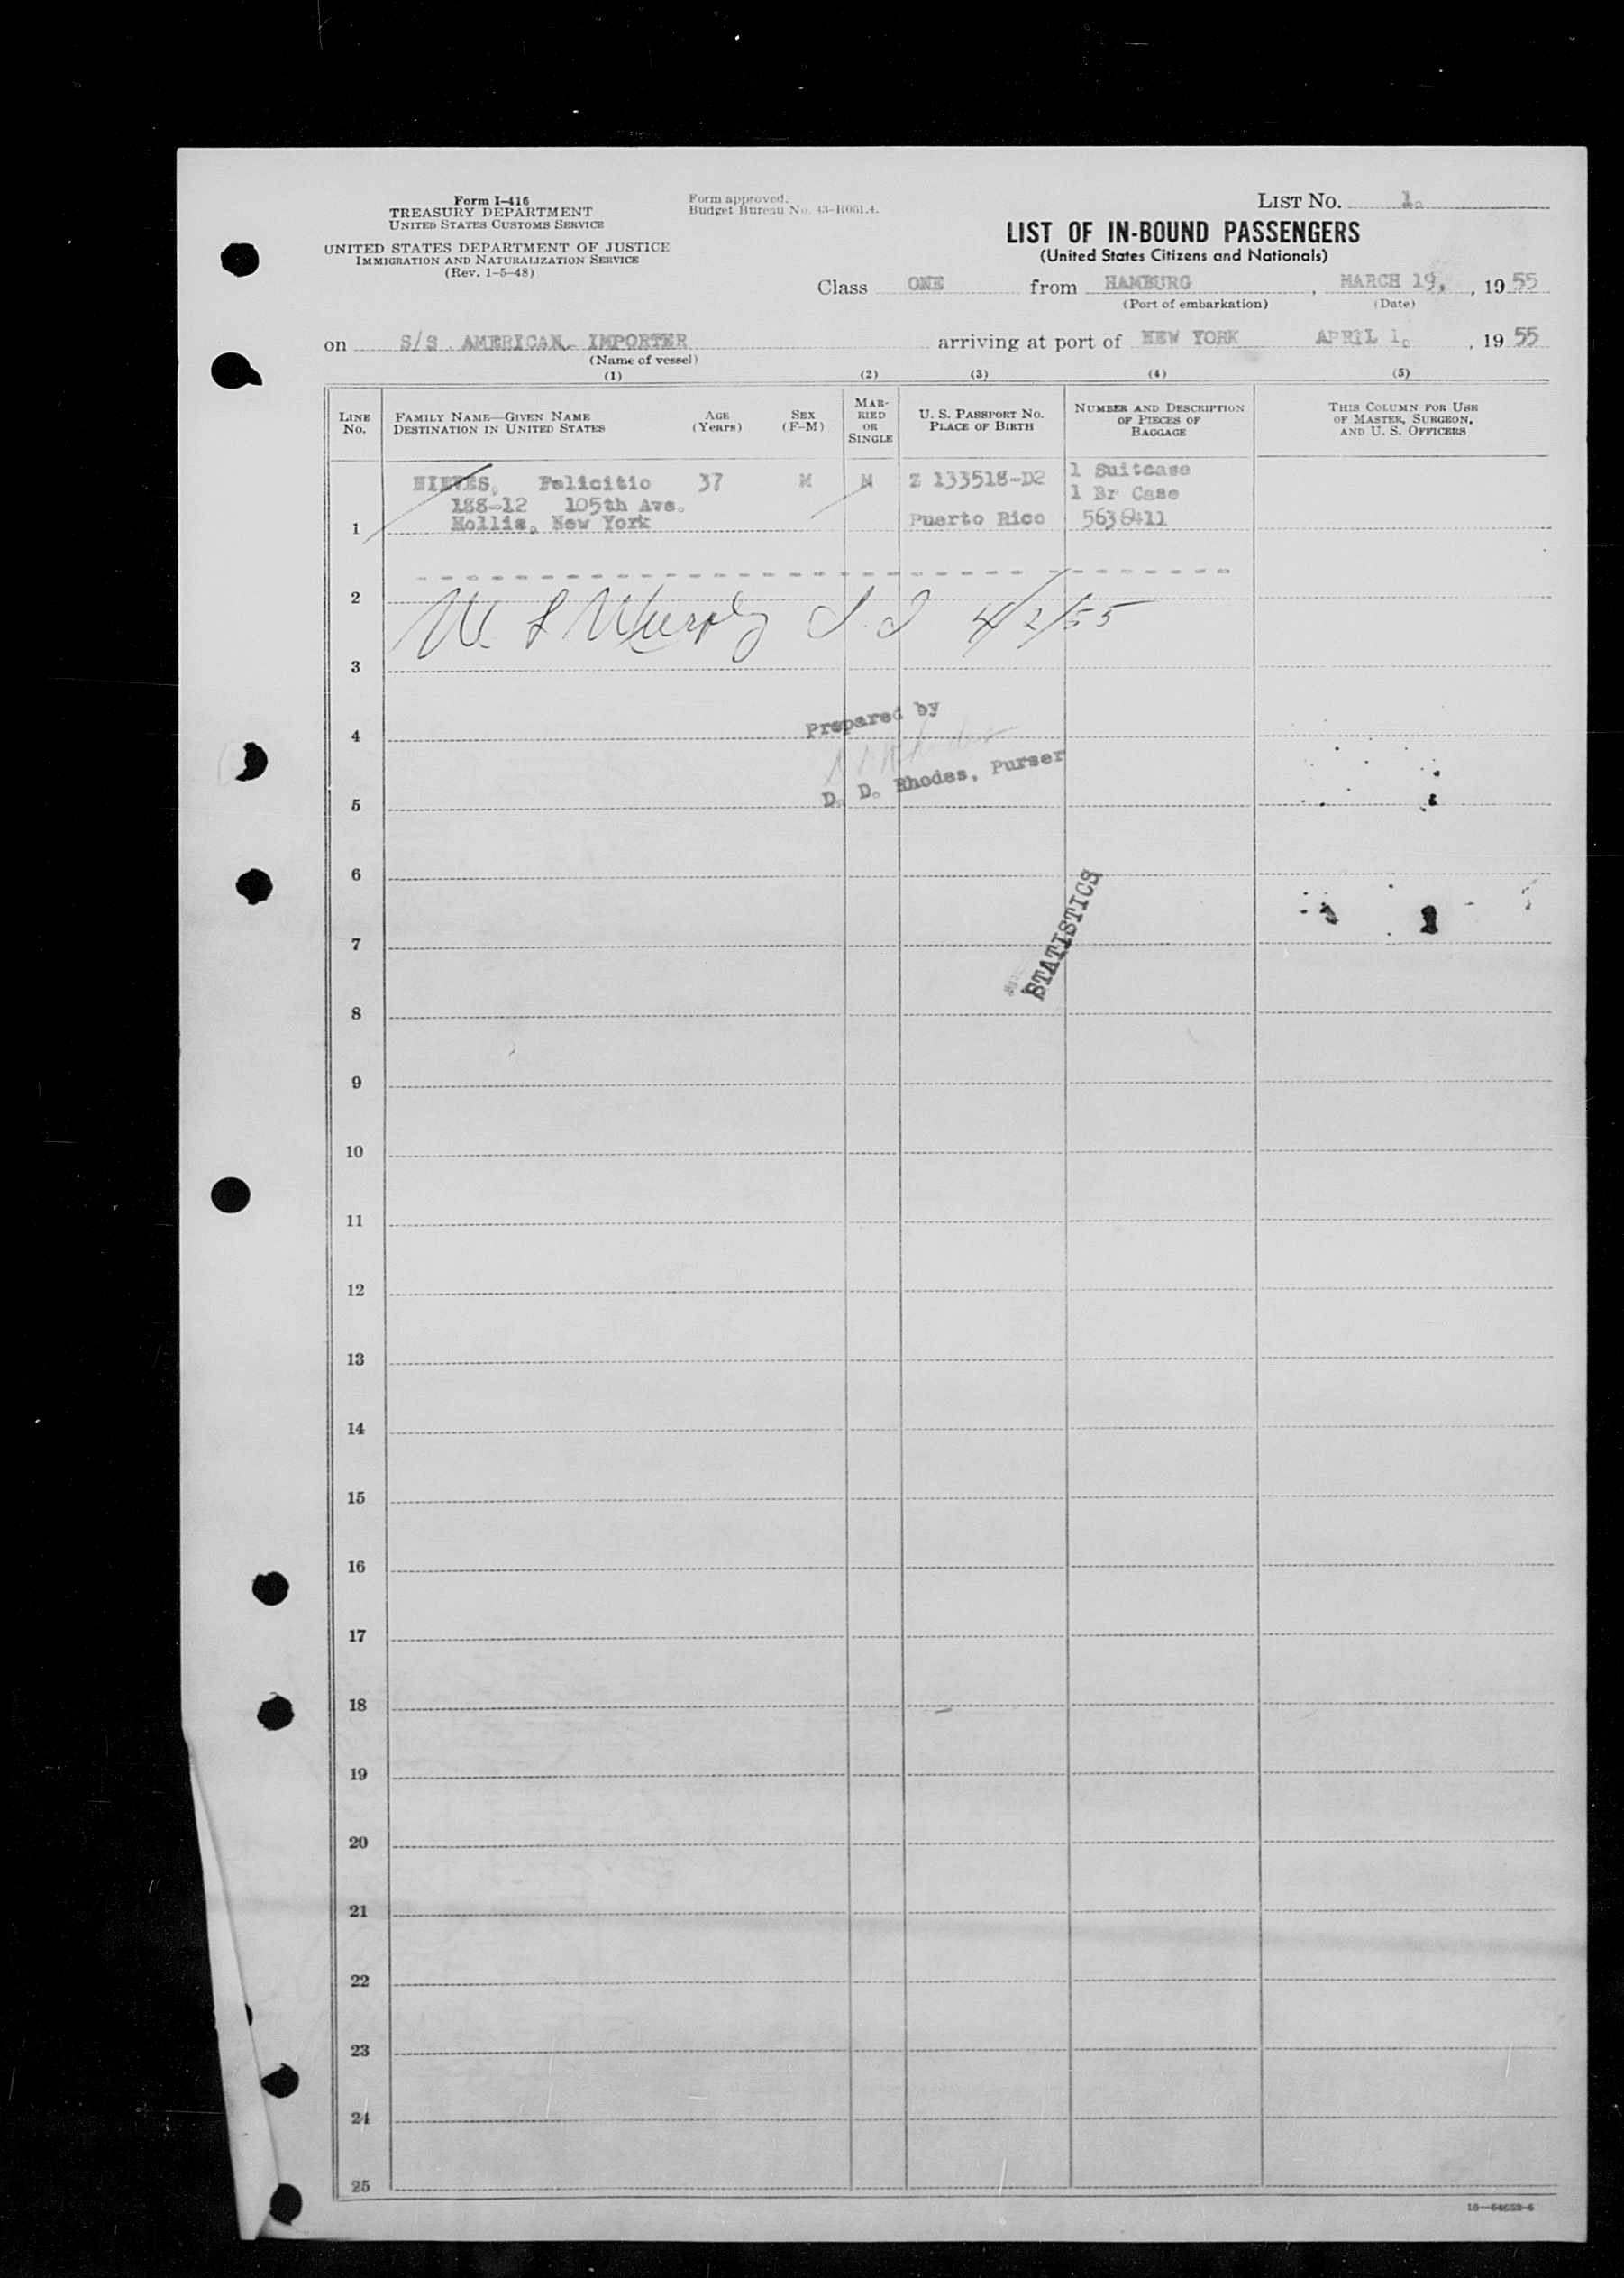 Form I-416
TREASURY DEPARTMENT
UNITED STATES CUSTOMS SERVICE
UNITED STATES DEPARTMENT OF JUSTICE
IMMIGRATION AND NATURALIZATION SERVICE
(Rev. 1-5-48)
Form approved.
Budget Bureau No. 43-R061.4.
LIST No. 1.
LIST OF IN-BOUND PASSENGERS
(United States Citizens and Nationals)
Class ONE from HAMBURG, MARCH 19, , 1955
(Port of embarkation) (Date)
on S/S AMERICAN IMPORTER arriving at port of NEW YORK APRIL 1. , 1955
(Name of vessel)
(1) (2) (3) (4) (5)
LINE No. FAMILY NAME—GIVEN NAME DESTINATION IN UNITED STATES AGE (Years) SEX (F-M) MARRIED OR SINGLE U. S. PASSPORT No. PLACE OF BIRTH NUMBER AND DESCRIPTION OF PIECES OF BAGGAGE THIS COLUMN FOR USE OF MASTER, SURGEON, AND U. S. OFFICERS
NIEVES, Felicitio 37 M M Z 133518-D2 1 Suitcase
188-12 105th Ave. 1 Br Case
1 Hollis, New York Puerto Rico 5638411
2
W L Murphy I.I 4/2/55
3
Prepared by
4
D. D. Rhodes, Purser
5
6
STATISTICS
7
8
9
10
11
12
13
14
15
16
17
18
19
20
21
22
23
24
25